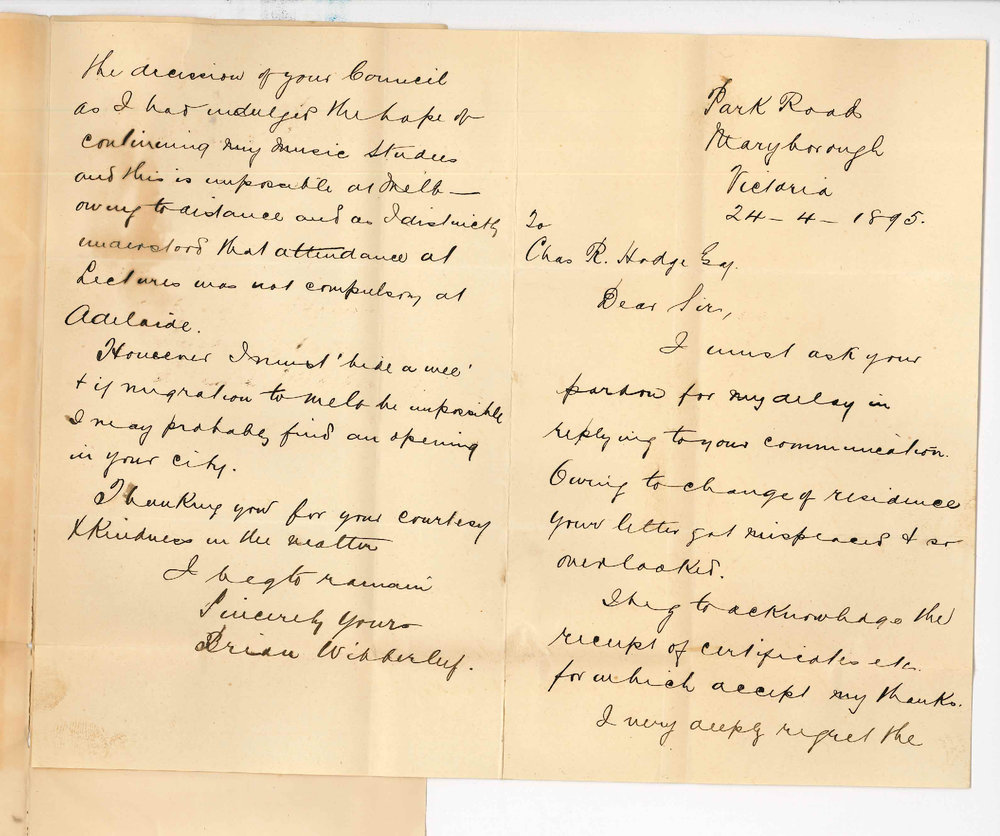 Park Road
Maryborough
Victoria
24 - 4 - 1895.
To
Chas R. Hodge Esq.
Dear Sir,
I must ask your
pardon for my delay in
replying to your communication.
Owing to change of residence
your letter got misplaced & so
overlooked.
I beg to acknowledge the
receipt of certificates etc.
for which accept my thanks.
I very deeply regret the
the decision of your Council
as I had indulged the hope of
continuing my music studies
and this is impossible at Melb —
owing to distance and as I distinctly
understood that attendance at
Lectures was not compulsory at
Adelaide.
However I must 'bide a wee'
& if migration to Melb be impossible
I may probably find an opening
in your city.
Thanking you for your courtesy
& Kindness in the matter
I beg to remain
Sincerely Yours
Brian Wibberley.